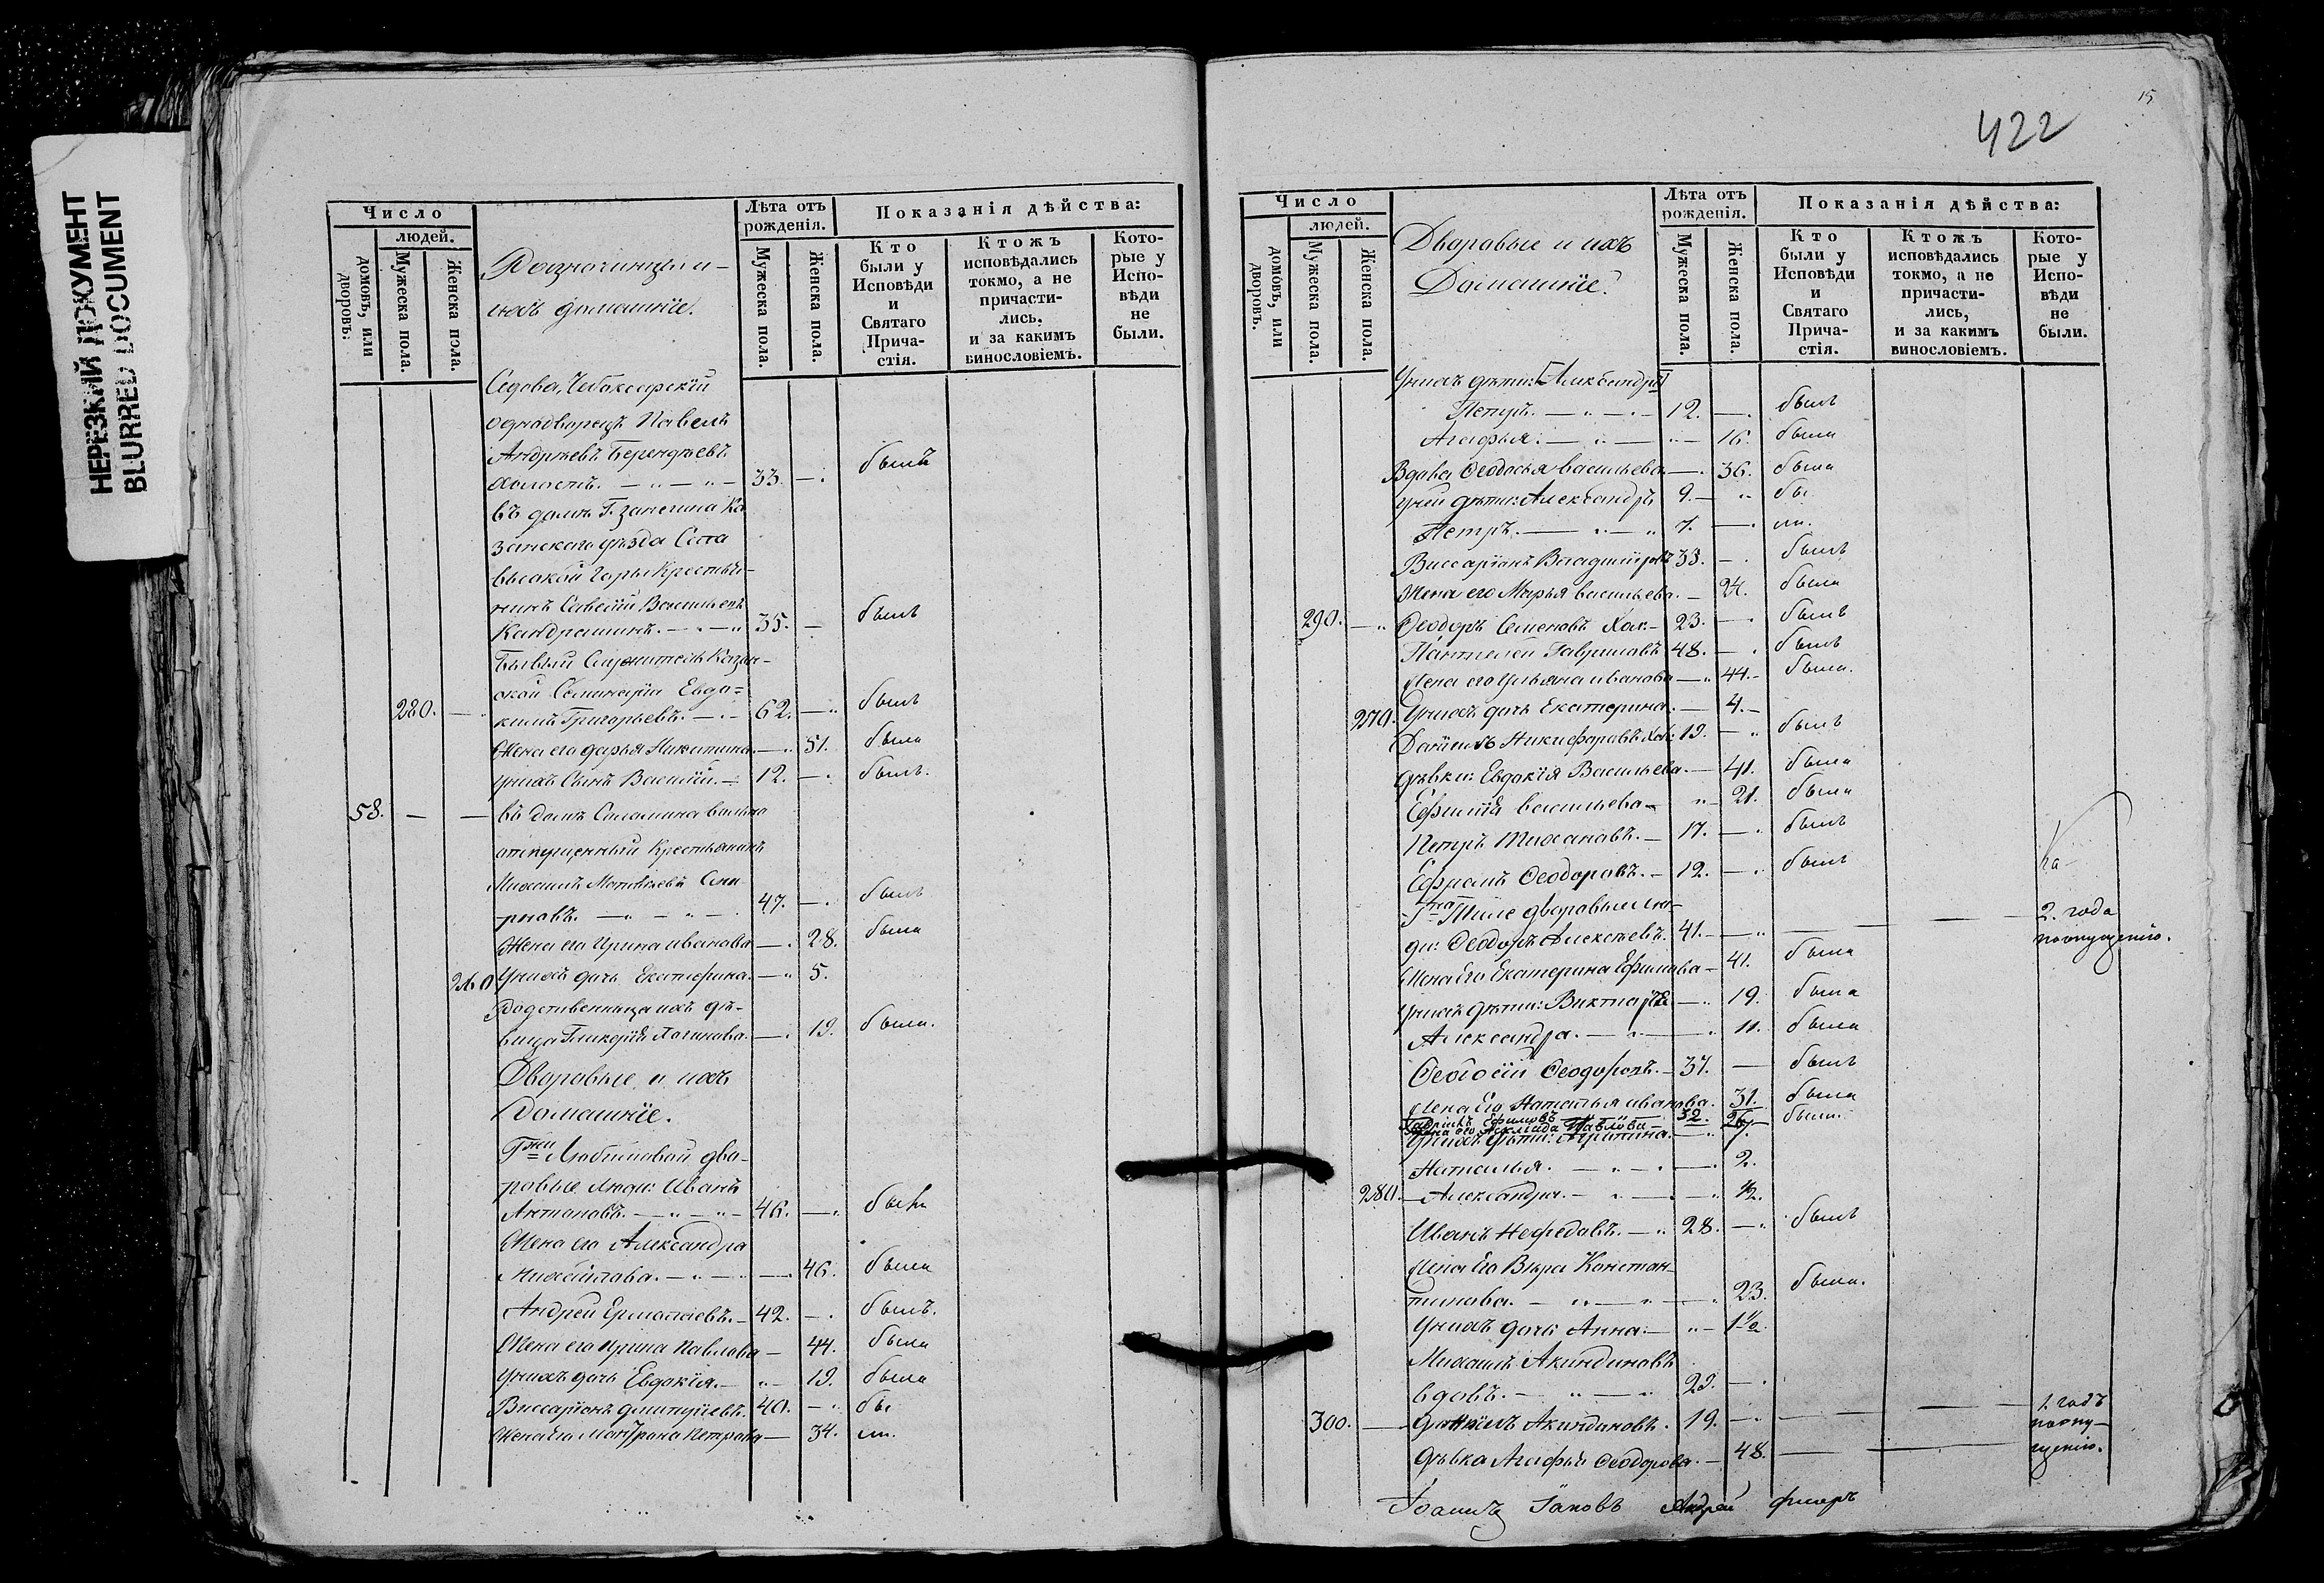 НЕРЕЗКИЙ ДОКУМЕНТ
BLURRED DOCUMENT
Число
людей.
домовъ, или дворовъ.
Мужеска пола.
Женска пола.
Разночинцы и
ихъ домашніе.
Лѣта отъ рожденія.
Мужеска пола.
Женска пола.
Показанія дѣйства:
Кто были у Исповѣди и Святаго Причастія.
Ктожъ исповѣдались токмо, а не причастились, и за какимъ винословіемъ.
Которые у Исповѣди не были.
Седова, Чебоксарскій
однодворецъ Павелъ
Андрѣевъ Берендѣевъ
холостъ. — 33. — былъ
въ домѣ Г. Запегина Ка
занскаго уѣзда Села
высокой Горы Крестья-
нинъ Савелій Васильевъ
Кандрашинъ. — 35. — былъ
Бывый Служитель Казан-
ской Семинаріи Евдо=
220. — кимъ Григорьевъ. — 62. — былъ
Жена его Дарья Никитина. — 51. была
У нихъ Сынъ Василій. — 12. — былъ.
58. — — въ домѣ Соломина вольно
отпущенный крестьянинъ
Михаилъ Матвѣевъ Сми
рновъ. — 47. — былъ
Жена его Ирина Иванова — 28. была
260 У нихъ дочь Екатерина. — 5.
Родственница ихъ дѣ-
вица Гликерія Логинова. — 19. была.
Дворовые и ихъ
Домашніе.
Гжи Любимовой дво-
ровые люди: Иванъ
Антоновъ. — 46. — былъ
Жена его Александра
Михайлова. — 46. была
Андрей Ермолаевъ. — 42. — былъ.
Жена его Ирина Павлова — 44. была
У нихъ дочь Евдокія. — 19. была
Виссаріонъ Дмитріевъ. 40. — бы
Жена его Матрона Петрова — 34. ли.
15
422
Число
людей.
домовъ, или дворовъ.
Мужеска пола.
Женска пола.
Дворовые и ихъ
Домашніе.
Лѣта отъ рожденія.
Мужеска пола.
Женска пола.
Показанія дѣйства:
Кто были у Исповѣди и Святаго Причастія.
Ктожъ исповѣдались токмо, а не причастились, и за какимъ винословіемъ.
Которые у Исповѣди не были.
У нихъ дѣти: Александръ
Петръ. — 12. — былъ
Агафья: — 16. была
Вдова Ѳеодосья Васильева — 36. была
У ней дѣти: Александръ 9. — бы
Петръ. — 7. — ли.
Виссаріонъ Владиміровъ 33. — былъ
Жена его Марья Васильева. — 24. была
290. — Ѳеодоръ Семеновъ Хол. — 23. — былъ
Пантелей Гавриловъ 48. — былъ
Жена его Ульяна Иванова — 44. — была.
270. У нихъ дочь Екатерина. — 4. —
Даніилъ Никифоровъ Хол: 19. — былъ
Дѣвки: Евдокія Васильева. — 41. была
Ефимія Васильева — 21. была
Петръ Тихановъ. — 17. — былъ
Ефремъ Ѳеодоровъ. — 12. — былъ
Гна Тиле дворовые лю-
ди: Ѳеодоръ Алексѣевъ. 41. — — — 2. года по опущенію.
Жена Его Екатерина Ефимова — 41. была
У нихъ дѣти: Викторія — 19. была
Александра. — 11. была
Ѳеодосій Ѳеодоровъ. — 37. — былъ
Жена Его Наталья Иванова. 31. была
Гавріилъ Ефимовъ — 32.
Жена его Павлова — 26. были.
У нихъ дѣти: Агрипина. — 7.
Наталья. — 2.
280. — Александра. — 1/2.
Иванъ Нефедовъ. — 28. — былъ
Жена Его Вѣра Констан-
тинова. — 23. была.
У нихъ дочь Анна: — 1 1/2.
Михаилъ Акиндиновъ
вдовъ. — 29. —
300. — Даніилъ Акиндиновъ. 19. — — — 1. годъ по опу-
Дѣвка Агафья Ѳеодорова. — 48. — — щенію.
Іоаннъ Іаковъ Андрей